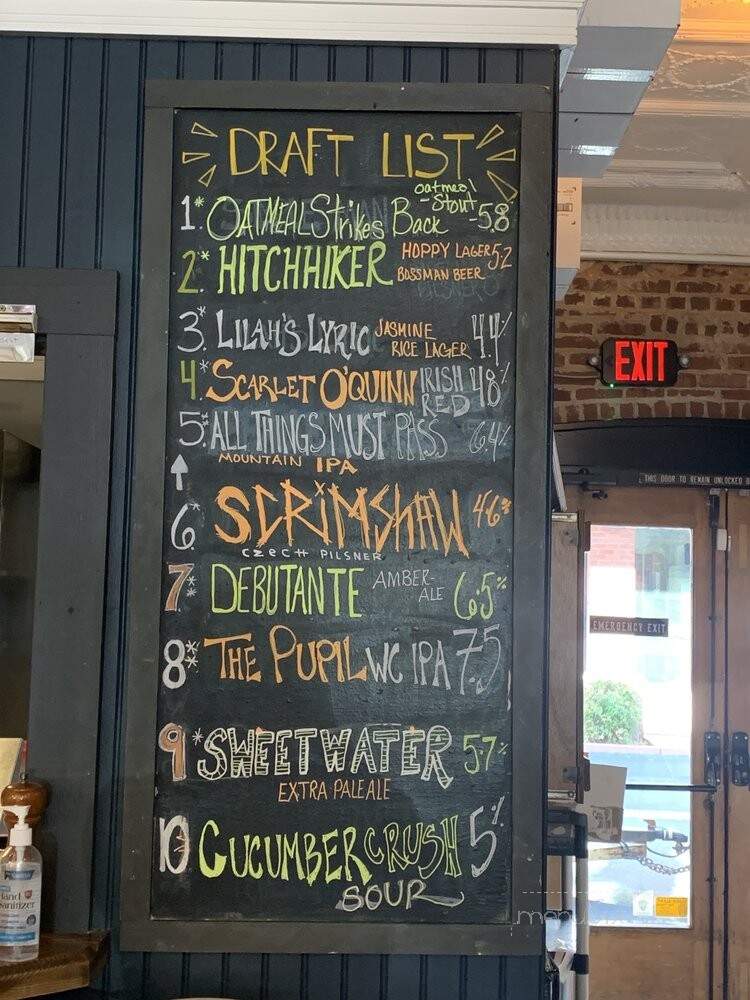 DRAFT LIST
1* OATMEAL Strikes Back oatmeal - Stout - 5.8
2.* HITCHHIKER HOPPY LAGER 5.2
BOSSMAN BEER
3.* LILAH'S LYRIC JASMINE RICE LAGER 4.4%
4.* SCARLET O'QUINN IRISH RED 4.8%
5.* ALL THINGS MUST PASS 6.4%
MOUNTAIN IPA
6.* SCRIMSHAW 4.6%
CZECH PILSNER
7.** DEBUTANTE AMBER-ALE 6.5%
8.** THE PUPIL WC IPA 7.5
9* SWEETWATER 5.7%
EXTRA PALE ALE
10 CUCUMBER CRUSH 5%
SOUR
EXIT
THIS DOOR TO REMAIN UNLOCKED
EMERGENCY EXIT